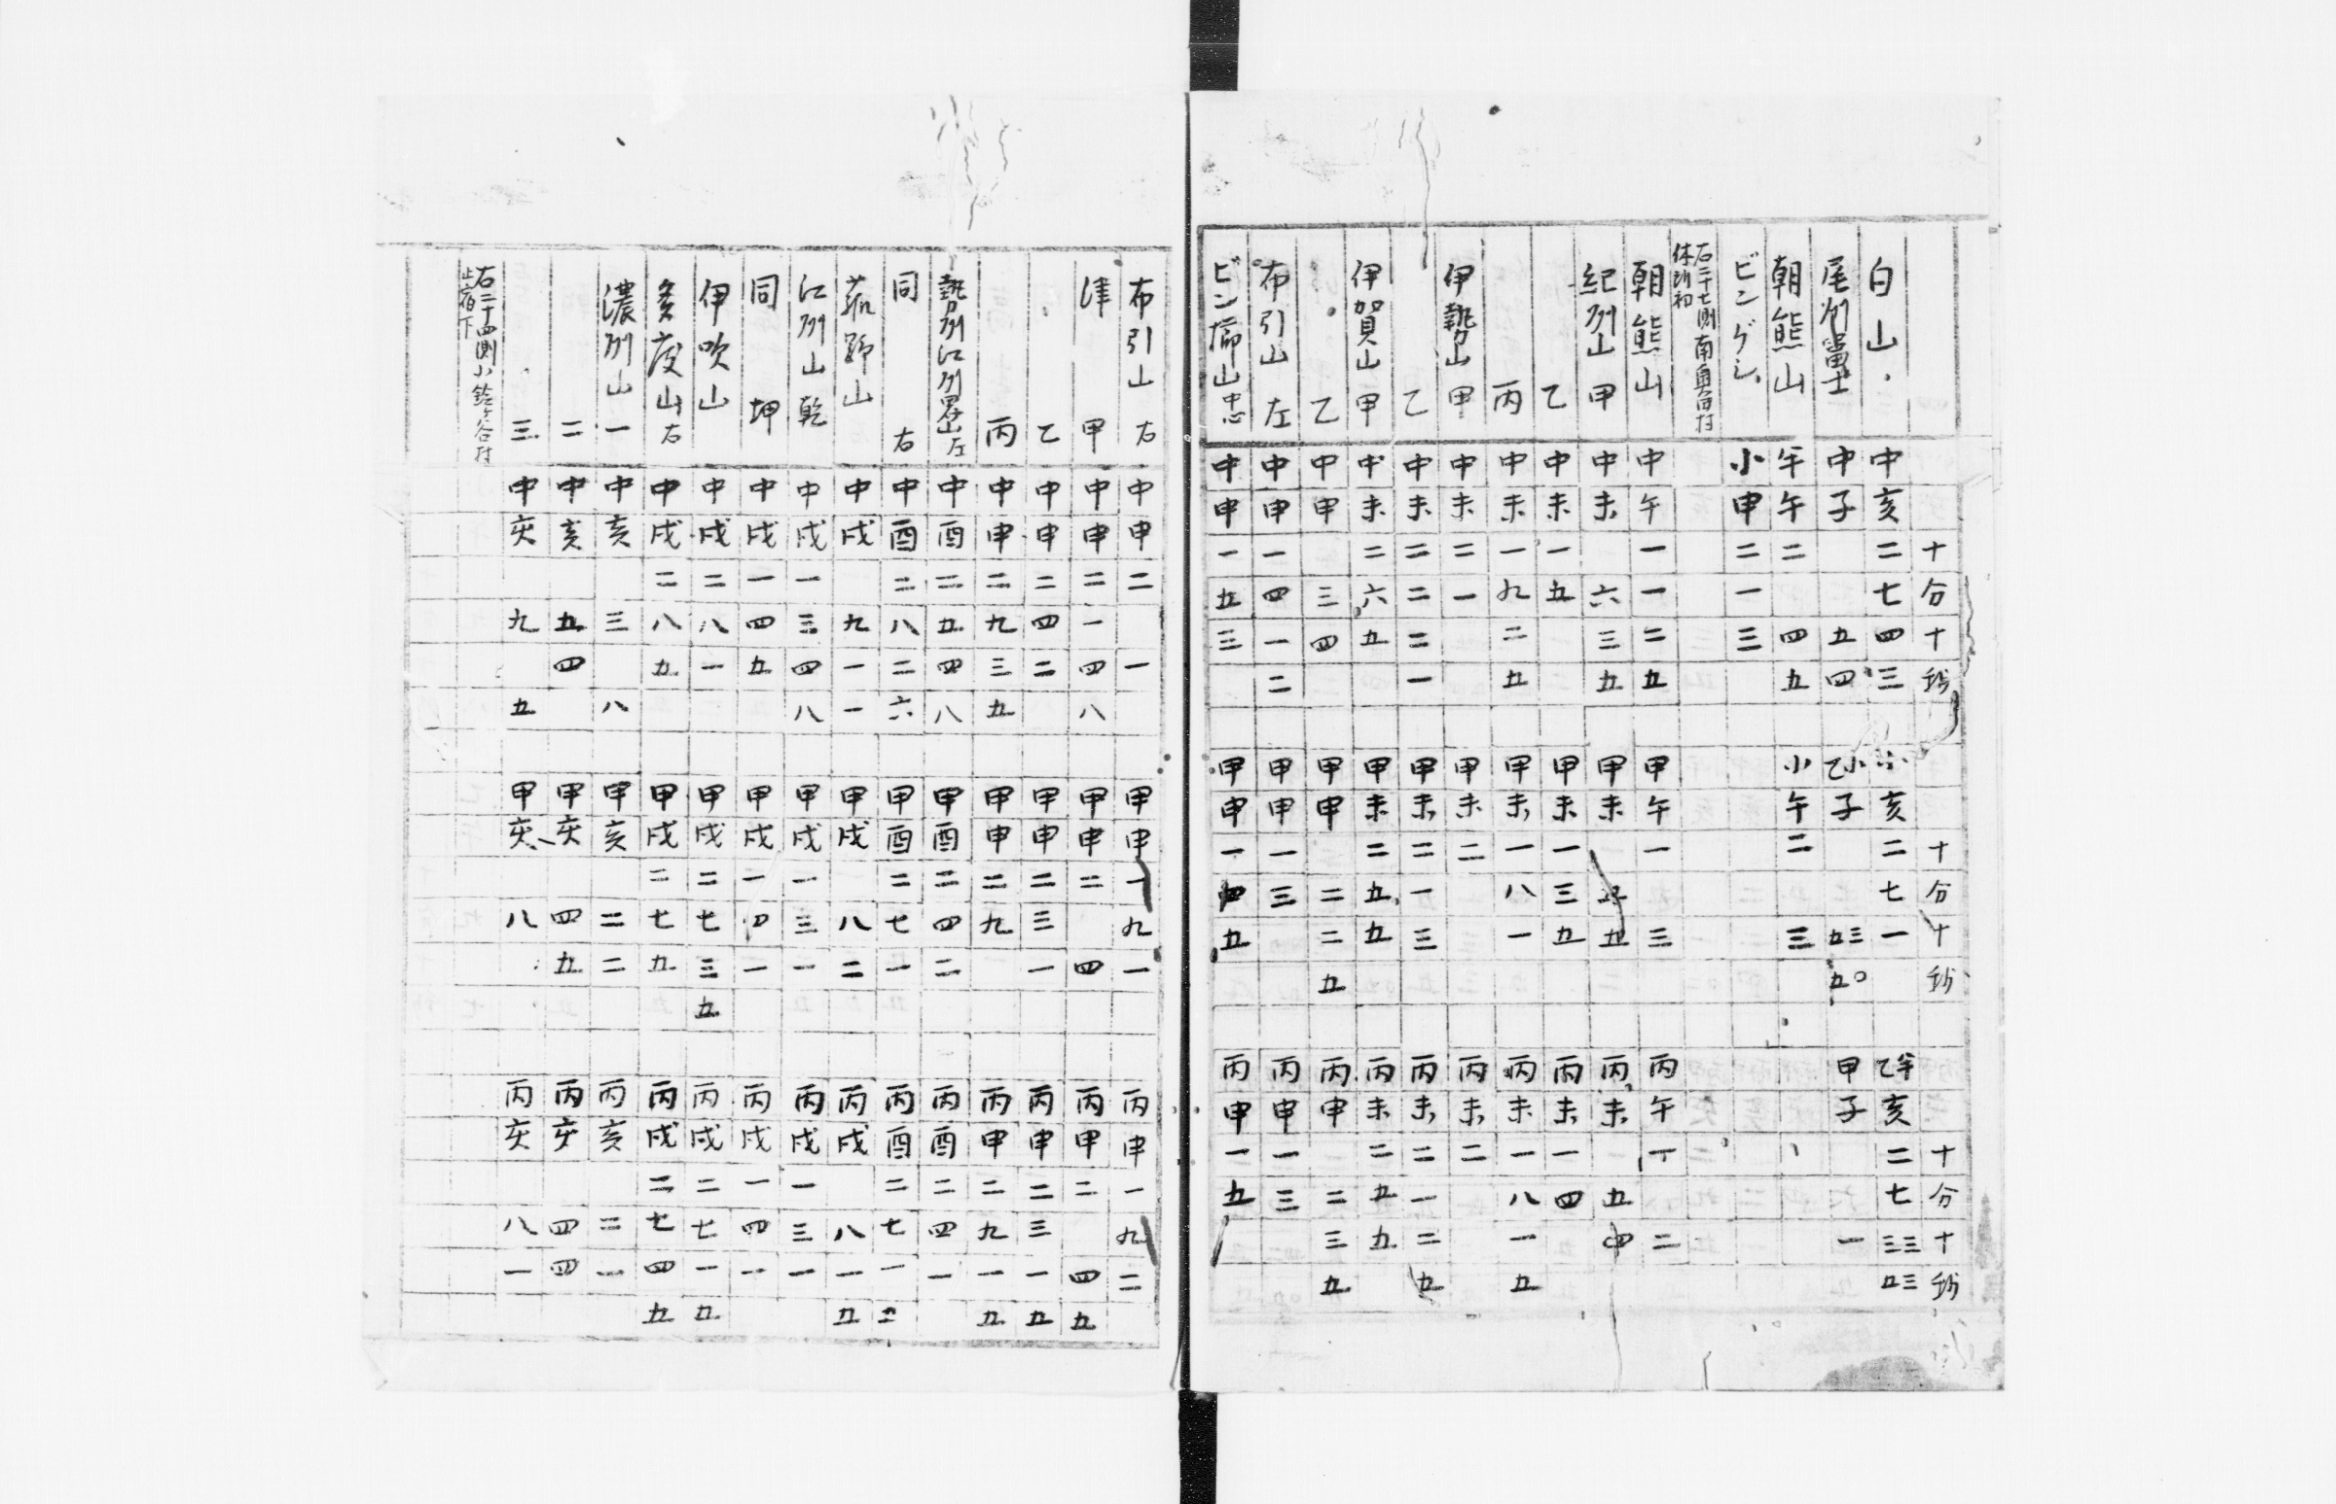 十分十秒 十分十秒 十分十秒
白山 中亥二七四三 小亥二七一 乙半亥二七三三三五
尾州冨士 中子五四 乙小子三五〇五 甲子一
朝熊山 半午二四五 小午二三
ビンゲシ 小申二一三
右二十七測南奥田村
休所初
朝熊山 中午一一二五 甲午一三 丙午一二
紀州山甲 中未六三五 甲未五五 丙未五四
乙 中未一五 甲未一三五 丙未一四
丙 中未一九二五 甲未一八一 丙未一八一五
伊勢山甲 中未二一 甲未二 丙未二
乙 中未二二二一 甲未二一三 丙未二一二五
伊賀山甲 中未二六五 甲未二五五 丙未二五五
乙 中申三四 甲申二二五 丙申二三五
布引山左 中申一四一二 甲申一三 丙申一三
ビン擲山中心 中申一五三 甲申一四五 丙申一五
布引山右 中申二一 甲申一九一 丙申一九二
津甲 中申二一四八 甲申二四 丙申二四五
乙 中申二四二 甲申二三一 丙申二三一五
丙 中申二九三五 甲申二九 丙申二九一五
勢州江州界山左 中酉二五四八 甲酉二四二 丙酉二四一
同右 中酉二八二六 甲酉二七一 丙酉二七一二
菰野山 中戌九一一 甲戌八二 丙戌八一五
江州山乾 中戌一三四八 甲戌一三一 丙戌一三一
同坤 中戌一四五 甲戌一四一 丙戌一四一
伊吹山 中戌二八一 甲戌二七三五 丙戌二七一五
多度山右 中戌二八五 甲戌二七五 丙戌二七四五
濃州山一 中亥三八 甲亥二二 丙亥二一
二 中亥五四 甲亥四五 丙亥四四
三 中亥九五 甲亥八 丙亥八一
右二十四測小鈴ヶ谷村
止宿下